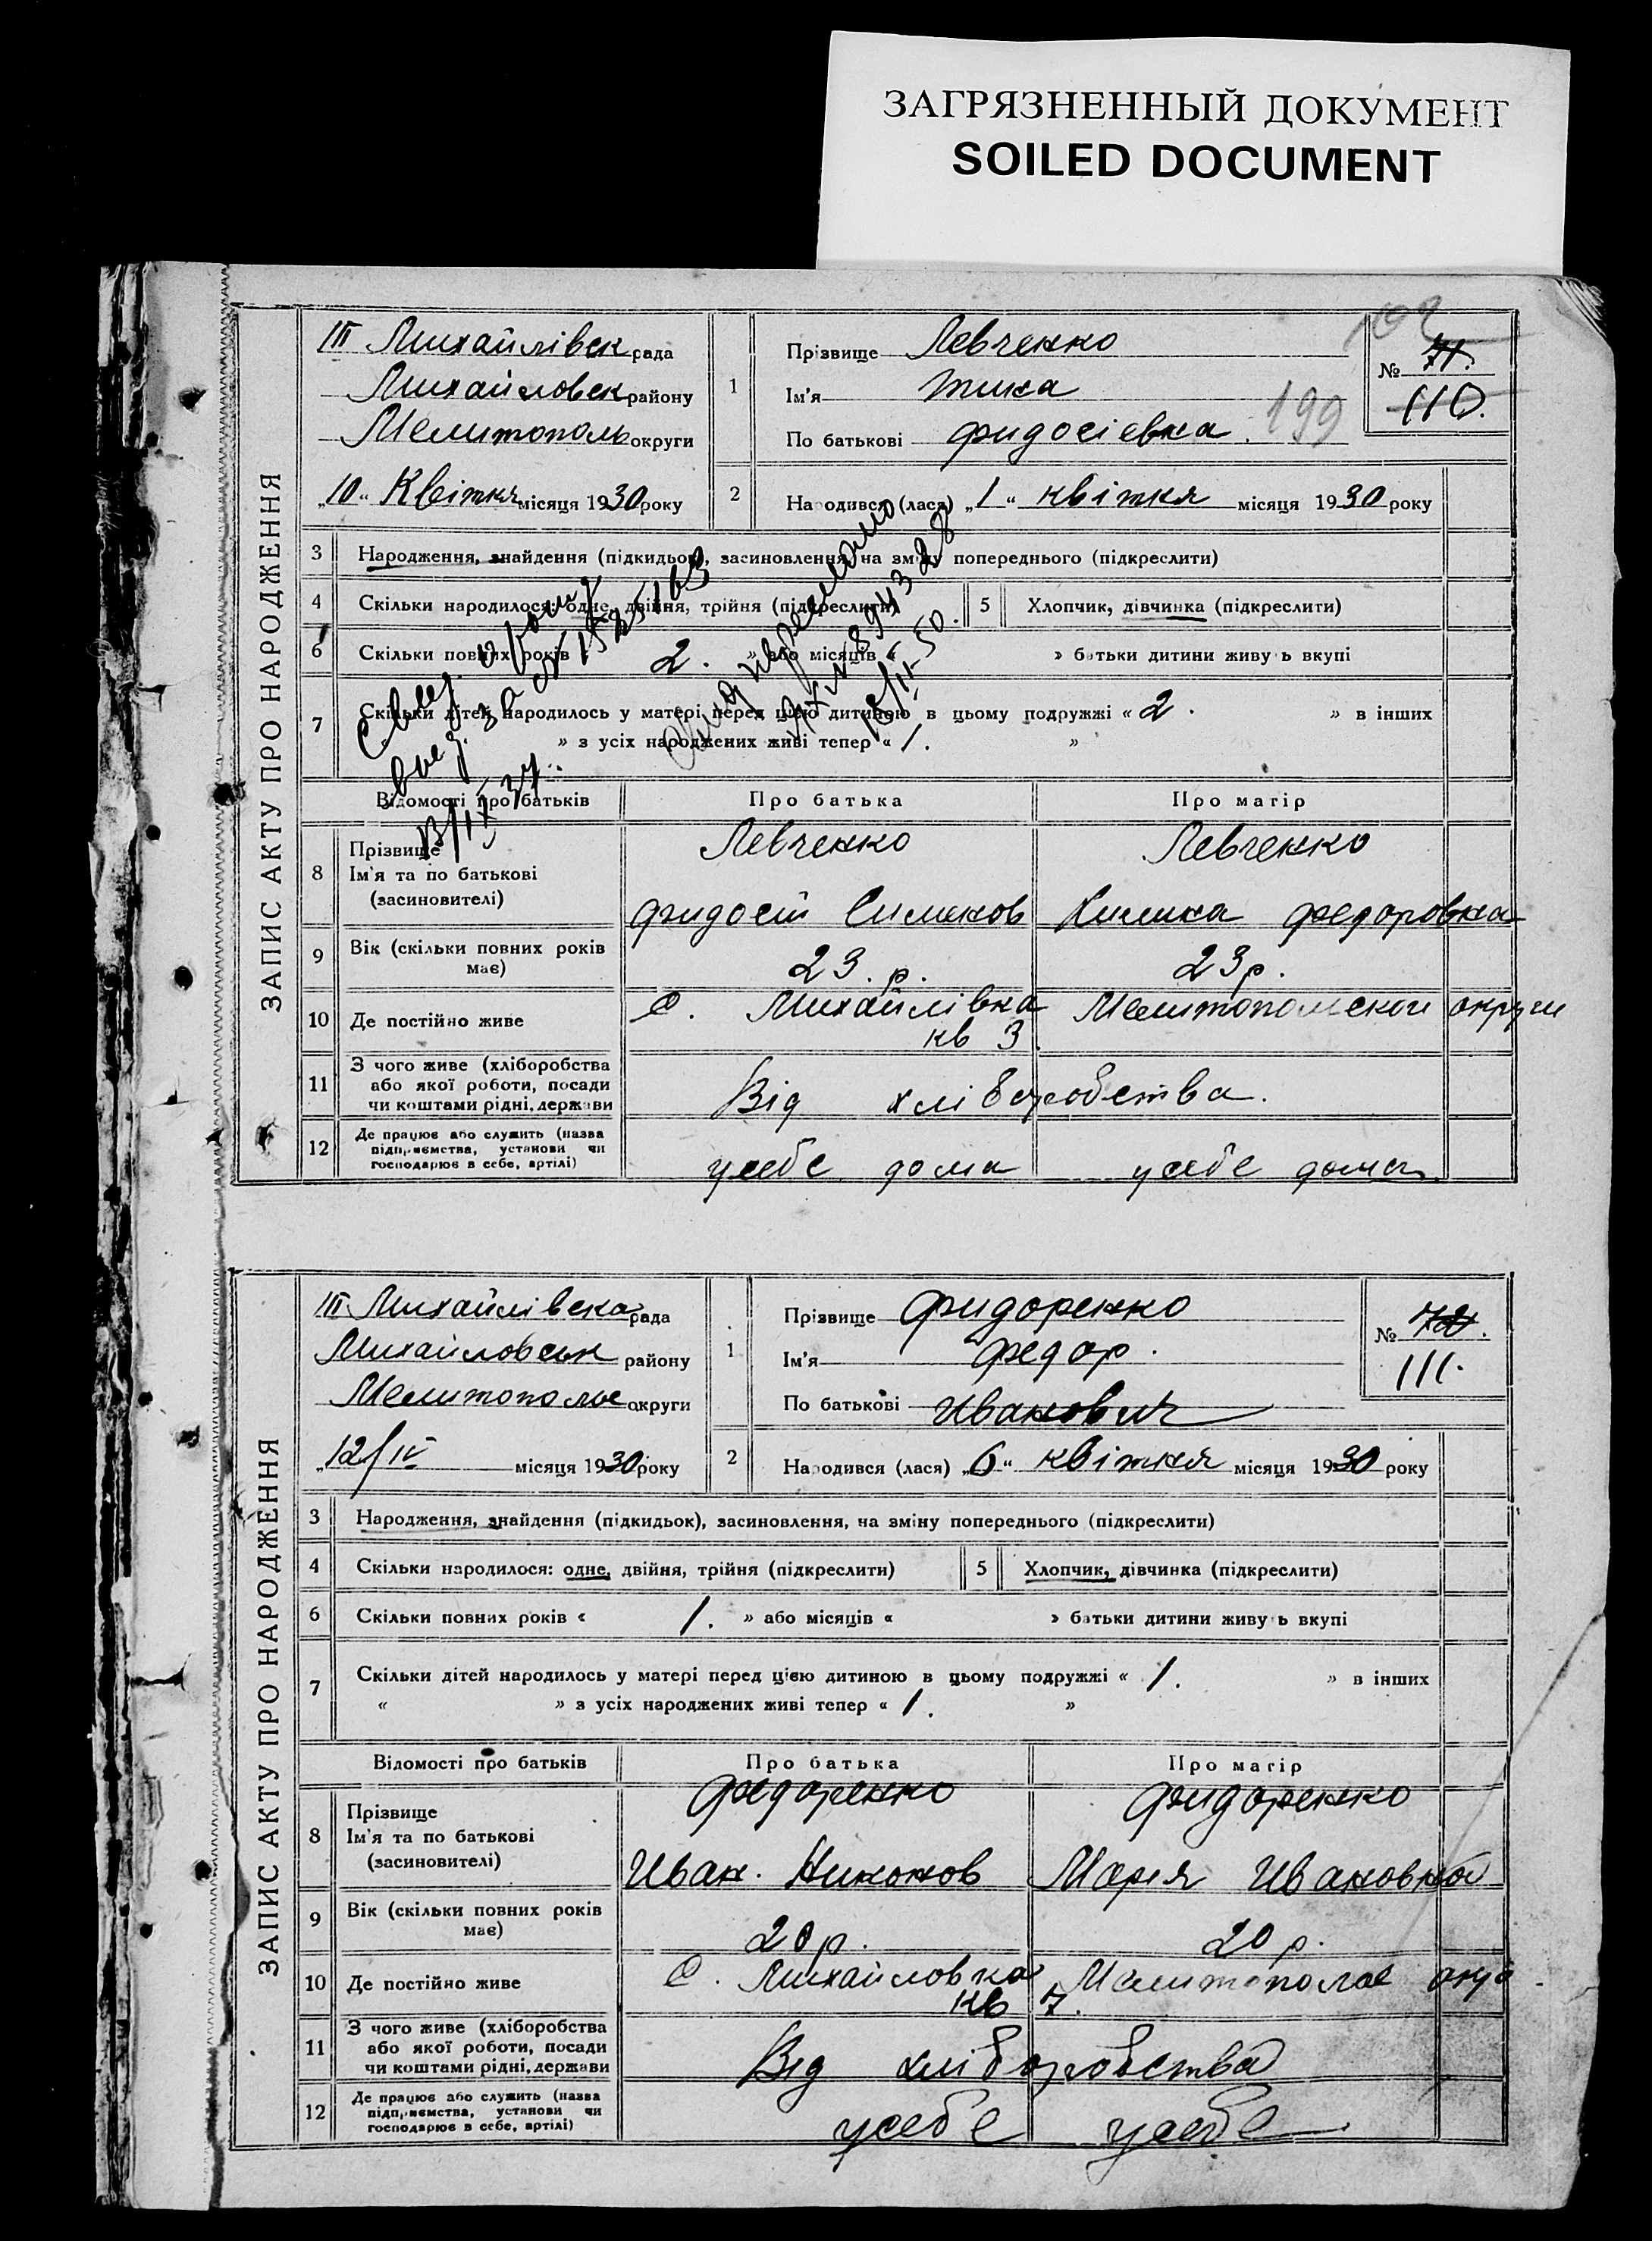 ЗАГРЯЗНЕННЫЙ ДОКУМЕНТ
SOILED DOCUMENT
ЗАПИС АКТУ ПРО НАРОДЖЕННЯ
III Михайлівск рада
Михайловск району
Мелитополь округи
„10“ Квітня місяця 1930 року
1
Прізвище Левченко
Ім'я
По батькові Фидосієвна.
199
№ 71.
110.
2
Народився (лася) „1“ квітня місяця 1930 року
3 Народження, знайдення (підкидьок), засиновлення, на зміну попереднього (підкреслити)
4 Скільки народилося: одне, двійня, трійня (підкреслити)
5 Хлопчик, дівчинка (підкреслити)
6 Скільки повних років « 2. » або місяців « » батьки дитини живуть вкупі
7 Скільки дітей народилось у матері перед цією дитиною в цьому подружжі « 2. » в інших
» з усіх народжених живі тепер « 1. »
Відомості про батьків
Про батька
Про матір
8 Прізвище
Ім'я та по батькові
(засиновителі)
Левченко
Левченко
Федоровна
9 Вік (скільки повних років
має)
23. р.
23 р.
10 Де постійно живе
с. Михайлівка Мелитопольскои округи
кв 3.
11 З чого живе (хліборобства
або якої роботи, посади
чи коштами рідні, держави
Від хліборобства.
12 Де працює або служить (назва
підприємства, установи чи
господарює в себе, артілі)
у себе дома
у себе дома
ЗАПИС АКТУ ПРО НАРОДЖЕННЯ
III Михайлівска рада
Михайловськ району
Мелитопольс округи
„12/IV місяця 1930 року
1
Прізвище Фидоренко
Ім'я Федор.
По батькові Иванович
№ 72.
111.
2
Народився (лася) „6“ квітня місяця 1930 року
3 Народження, знайдення (підкидьок), засиновлення, на зміну попереднього (підкреслити)
4 Скільки народилося: одне, двійня, трійня (підкреслити)
5 Хлопчик, дівчинка (підкреслити)
6 Скільки повних років « 1. » або місяців « » батьки дитини живуть вкупі
7 Скільки дітей народилось у матері перед цією дитиною в цьому подружжі « 1. » в інших
« » з усіх народжених живі тепер « 1. »
Відомості про батьків
Про батька
Про матір
8 Прізвище
Ім'я та по батькові
(засиновителі)
Федоренко
Фидоренко
Иван. Никонов
Мария Ивановна
9 Вік (скільки повних років
має)
20 р.
20 р.
10 Де постійно живе
с. Михайловка Мелитопольс окр
кв 7.
11 З чого живе (хліборобства
або якої роботи, посади
чи коштами рідні, держави
Від хліборобства
12 Де працює або служить (назва
підприємства, установи чи
господарює в себе, артілі)
у себе
у себе